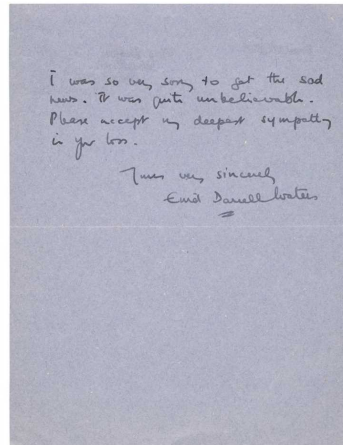 I was so very sorry to get the sad
news. It was quite unbelievable.
Please accept my deepest sympathy
in yr loss.
Yours very sincerely
Enid Darrell Waters